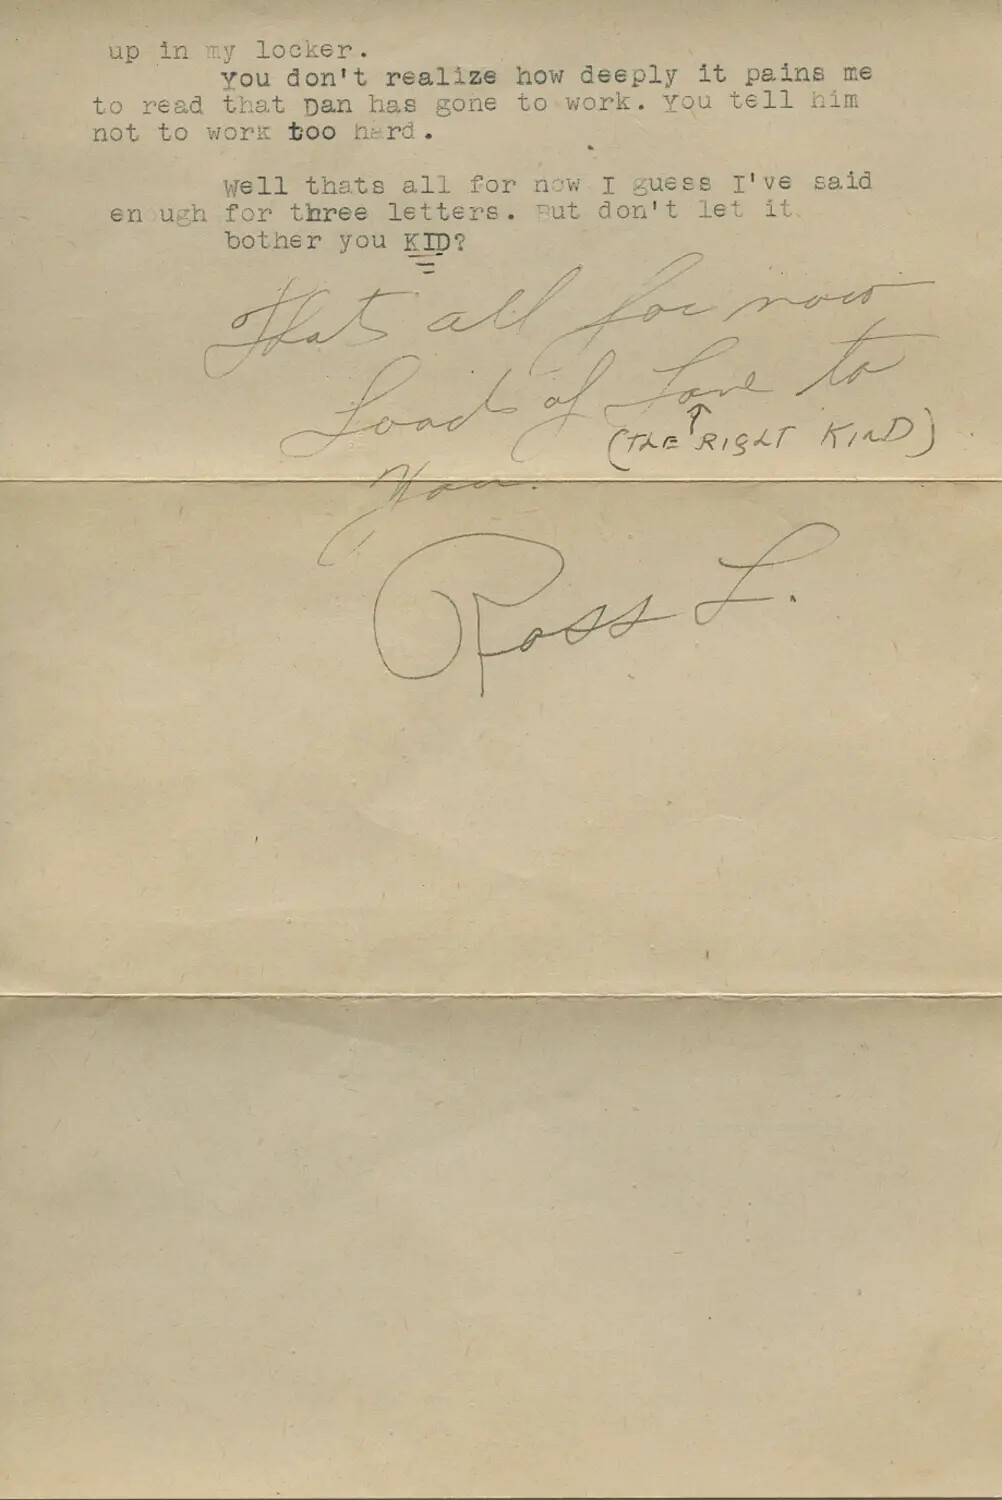 up in my locker.
You don't realize how deeply it pains me
to read that Dan has gone to work. You tell him
not to work too hard.
Well thats all for now I guess I've said
enough for three letters. But don't let it
bother you KID?
That's all for now
Loads of Love to
(THE RIGHT KIND)
You.
Ross L.